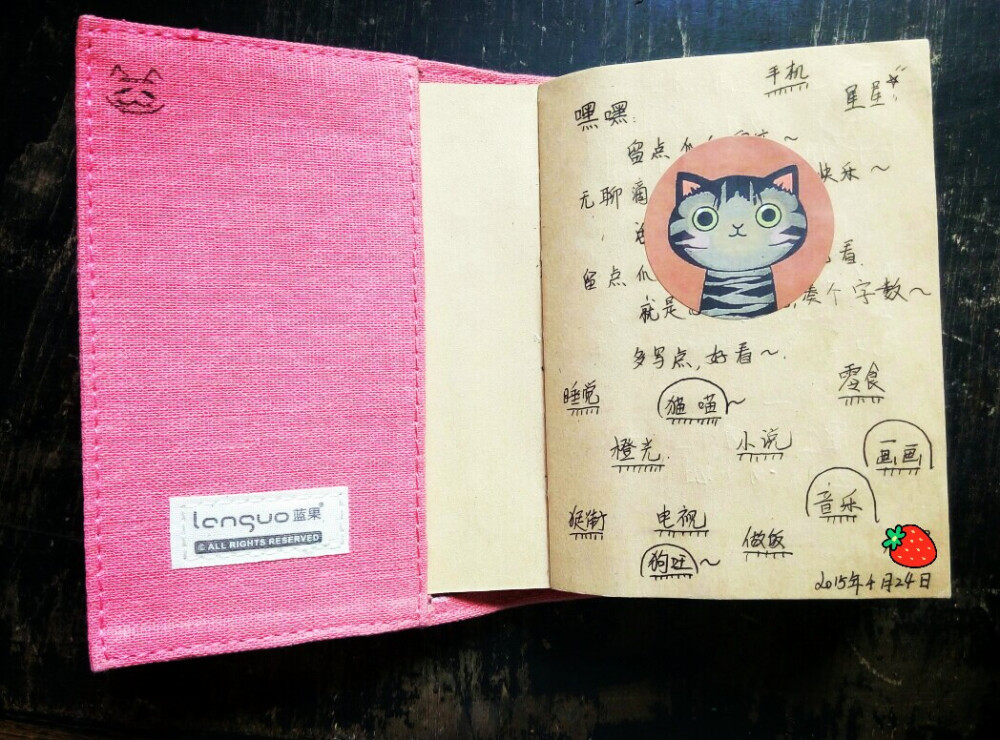 languo 蓝果
© ALL RIGHTS RESERVED
手机
星星
嘿嘿:
留点
~
无聊滴
快乐~
看
留点
就是
凑个字数~
多写点,好看~.
睡觉
猫喵~
零食
橙光
小说
画画
音乐
逛街
电视
做饭
狗旺~
2015年4月24日